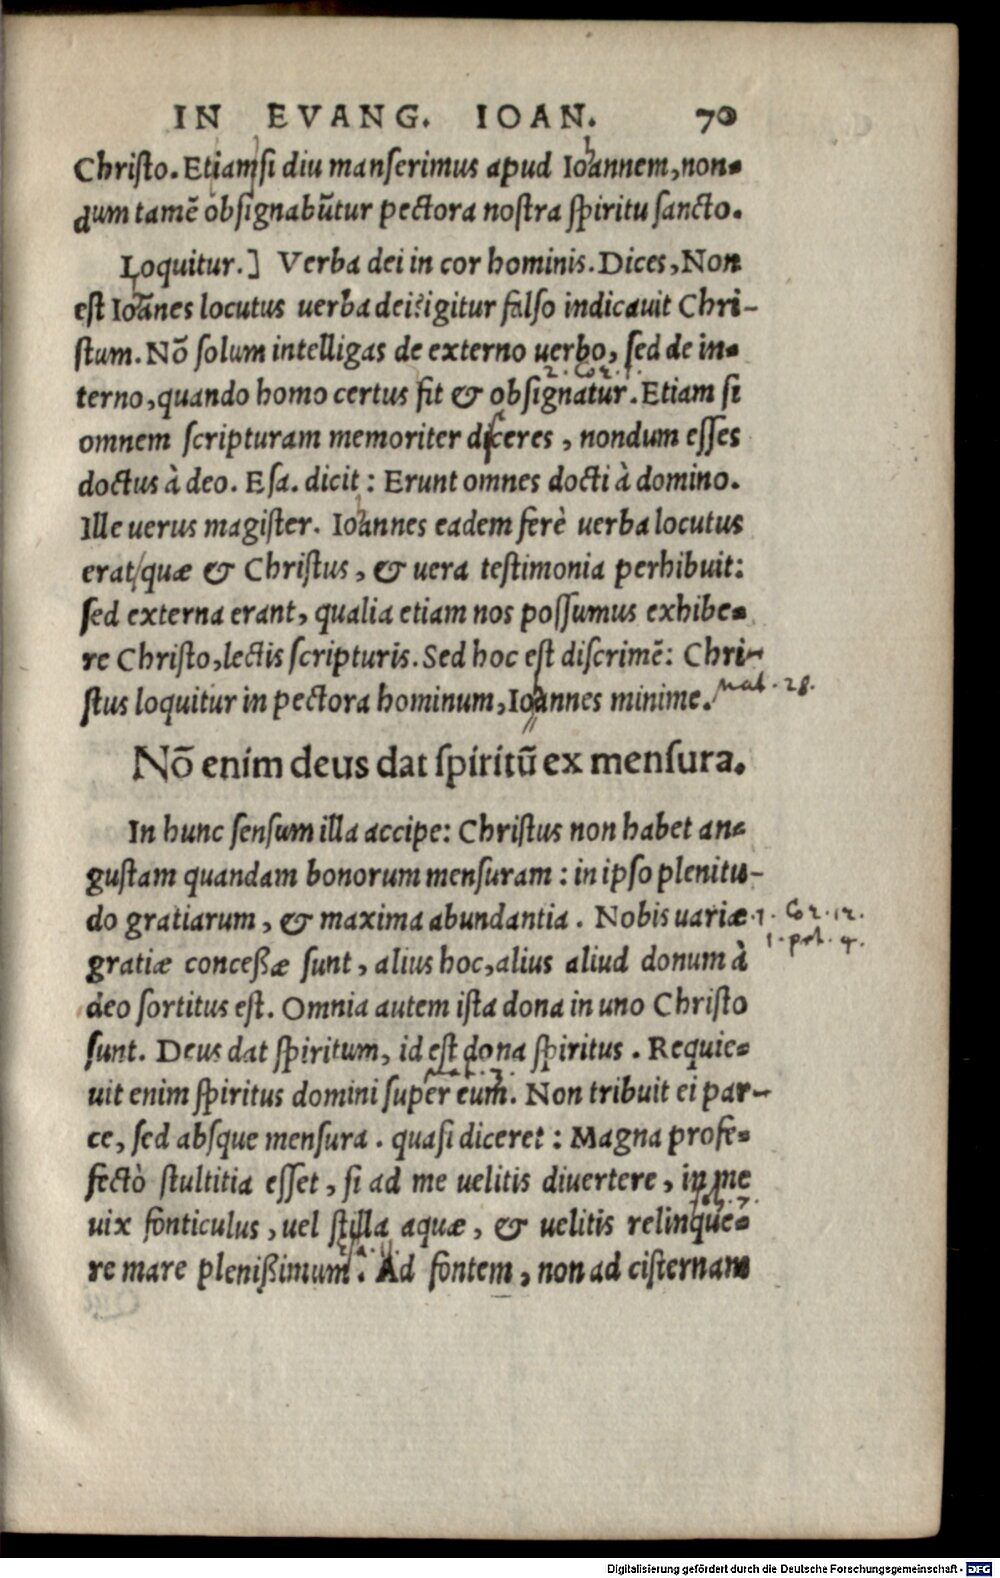 IN EVANG. IOAN. 70
Christo. Etiamsi diu manserimus apud Ioannem, non-
dum tamē obsignabūtur pectora nostra spiritu sancto.
Loquitur.] Verba dei in cor hominis. Dices, Non
est Ioānes locutus uerba dei: igitur falso indicauit Chri-
stum. Nō solum intelligas de externo uerbo, sed de in-
2. Cor. 1.
terno, quando homo certus fit & obsignatur. Etiam si
omnem scripturam memoriter diceres, nondum esses
doctus à deo. Esa. dicit: Erunt omnes docti à domino.
Ille uerus magister. Ioannes eadem ferè uerba locutus
erat/quæ & Christus, & uera testimonia perhibuit:
sed externa erant, qualia etiam nos possumus exhibe-
re Christo, lectis scripturis. Sed hoc est discrimē: Chri-
stus loquitur in pectora hominum, Ioannes minime. Mat. 28.
Nō enim deus dat spiritū ex mensura.
In hunc sensum illa accipe: Christus non habet an-
gustam quandam bonorum mensuram: in ipso plenitu-
do gratiarum, & maxima abundantia. Nobis uariæ 1. Cor. 12.
1. pet. 4.
gratiæ conceßæ sunt, alius hoc, alius aliud donum à
deo sortitus est. Omnia autem ista dona in uno Christo
sunt. Deus dat spiritum, id est dona spiritus. Requie-
Mat. 3.
uit enim spiritus domini super eum. Non tribuit ei par-
ce, sed absque mensura. quasi diceret: Magna profe-
fectò stultitia esset, si ad me uelitis diuertere, in me
uix fonticulus, uel stilla aquæ, & uelitis relinque-
re mare plenißimum. Ad fontem, non ad cisternam
Digitalisierung gefördert durch die Deutsche Forschungsgemeinschaft - DFG